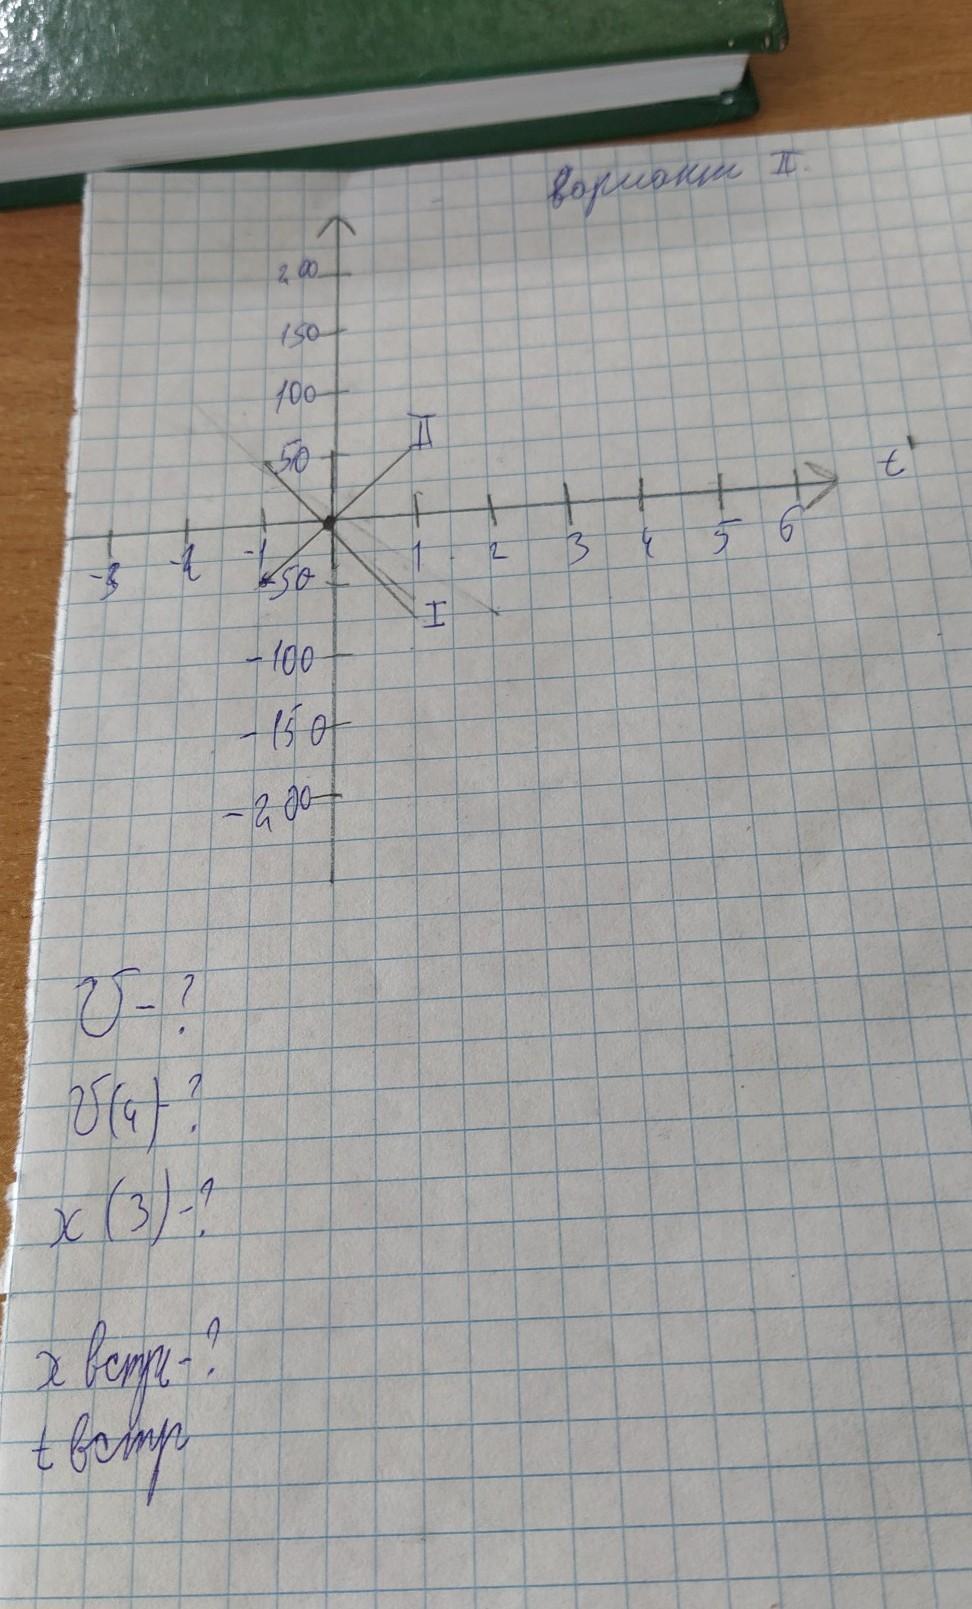 Вариант II.
200
150
100
II
50
t'
-3 -2 -1 1 2 3 4 5 6
-50
I
-100
-150
-200
υ-?
υ(4)-?
x (3)-?
x встр-?
t встр